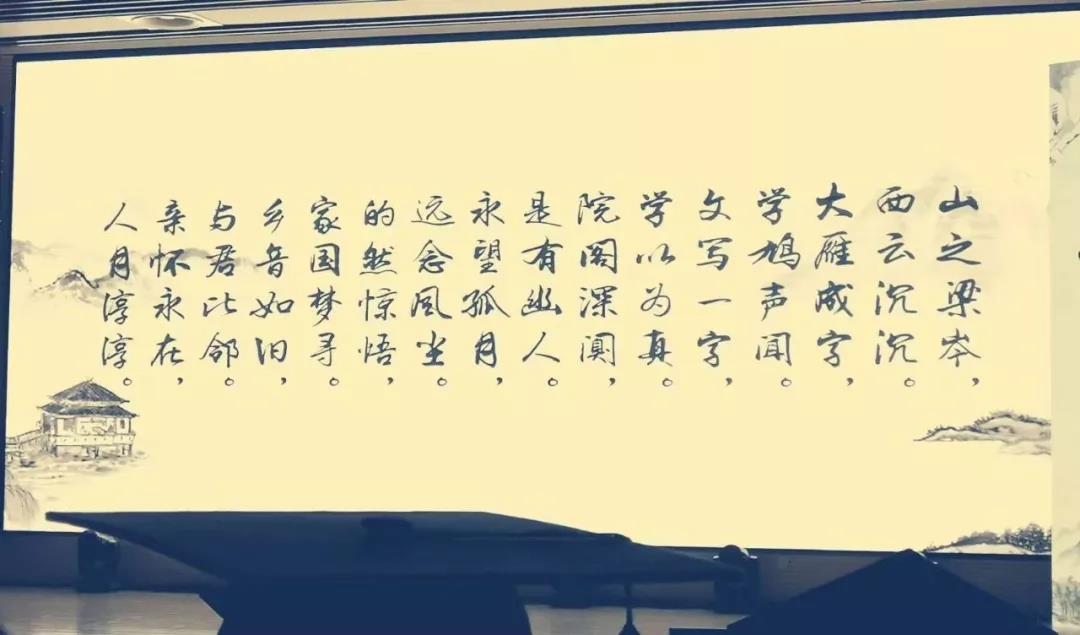 山之梁夲，
西云沉沉。
大雁成字，
学鸠声闻。
文写一字，
学以为真。
院阁深阒，
是有幽人。
永望孤月，
远念风尘。
的然惊悟，
家国梦寻。
乡音如旧，
与君比邻。
亲怀永在，
人月淳淳。